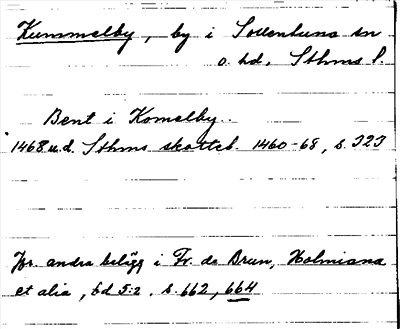 Kummelby, by i Sollentuna sn
o. hd, Sthms l.
Bent i Komelby..
1468 u.d. Sthms skotteb. 1460-68, s. 323
Jfr. andra belägg i Fr. de Brun, Holmiana
et alia, bd 5:2. s. 662, 664